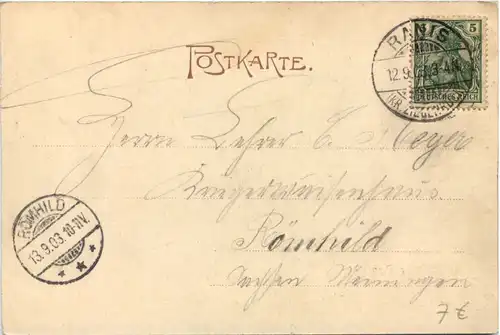 POSTKARTE.
RANIS
12.9.03. 3-4 N.
(KR. ZIEGENRÜCK)
5
DEUTSCHES REICH
Herrn Lehrer C. Meyer
Kriegerwaisenhaus
Römhild
Sachsen Meiningen
RÖMHILD
13.9.03.10-11V.
7 €